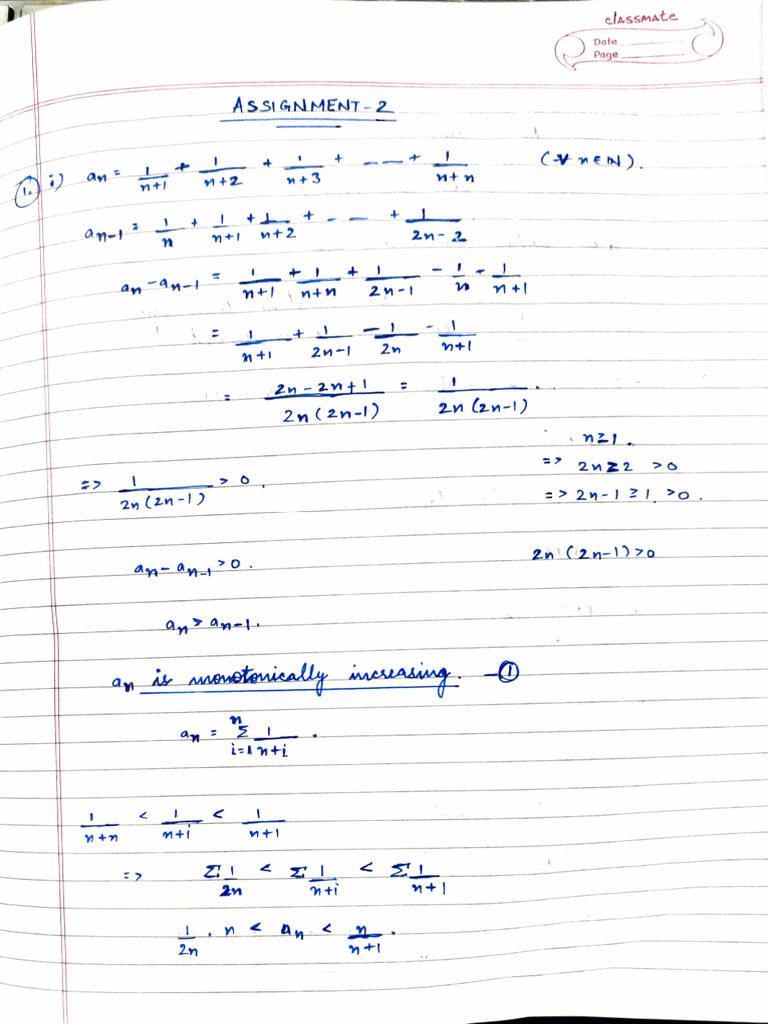 classmate
Date
Page
ASSIGNMENT-2
1. i) an = 1/(n+1) + 1/(n+2) + 1/(n+3) + ---- + 1/(n+n) (∀ n∈N).
an-1 = 1/n + 1/(n+1) + 1/(n+2) + - -- + 1/(2n-2)
an - an-1 = 1/(n+1) + 1/(n+n) + 1/(2n-1) - 1/n - 1/(n+1)
= 1/(n+1) + 1/(2n-1) - 1/2n - 1/(n+1)
= (2n-2n+1)/(2n(2n-1)) = 1/(2n(2n-1)).
n≥1.
=> 2n≥2 >0
=> 1/(2n(2n-1)) > 0.
=> 2n-1≥1 >0.
an - an-1 > 0.
2n (2n-1)>0
an > an-1.
an is monotonically increasing. -①
an = n Σ i=1 1/(n+i).
1/(n+n) < 1/(n+i) < 1/(n+1)
=> Σ 1/2n < Σ 1/(n+i) < Σ 1/(n+1)
1/2n . n < an < n/(n+1).